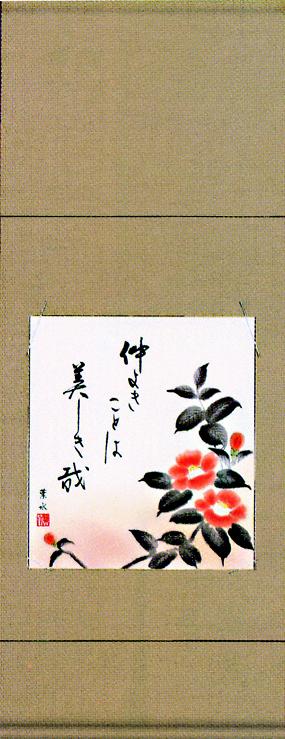 仲よき
ことは
美しき哉
葉水